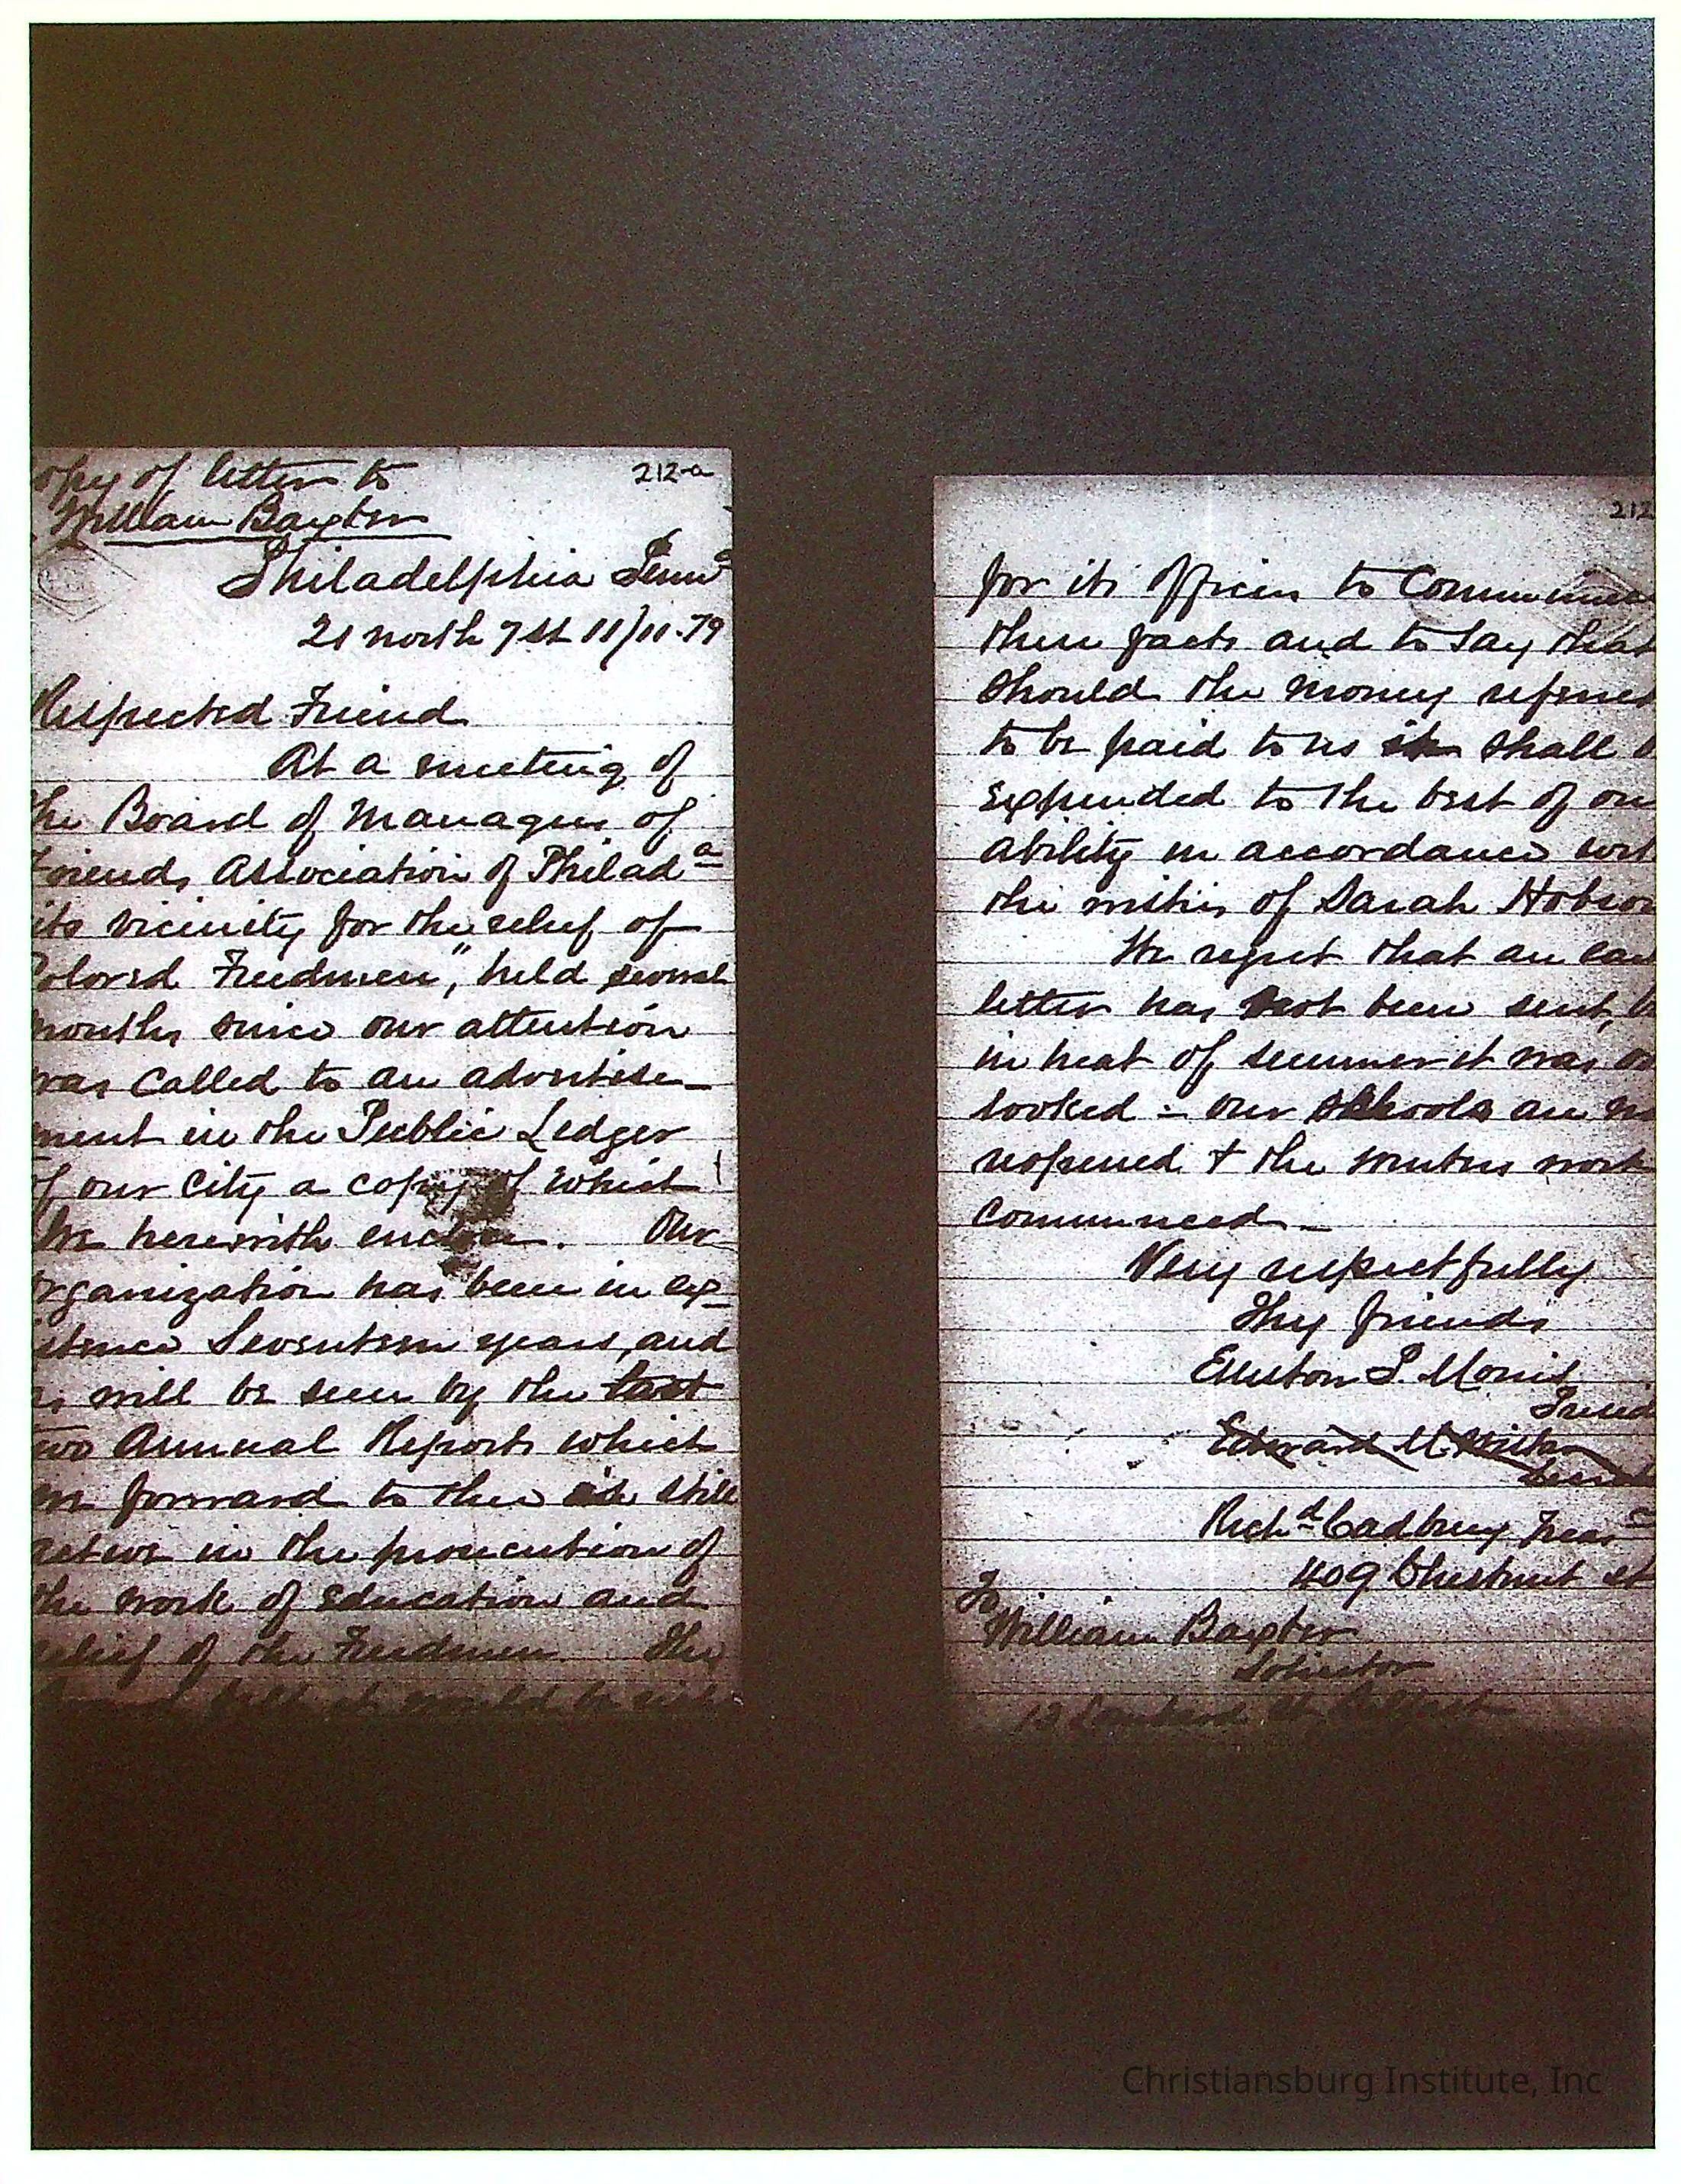 opy of letter to
William Baxter
212-a
Philadelphia Penna
21 north 7 St 11/11.79
Respected Friend
At a meeting of
he Board of Managers of
riends Association of Philada
its vicinity for the relief of
olored Freedmen", held several
onths since our attention
was called to an advertise-
ment in the Public Ledger
of our City a copy of which
we herewith enclose. Our
rganization has been in ex-
istence Seventeen years, and
as will be seen by the last
two Annual Reports which
we forward to thee is still
active in the prosecution of
the work of Education and
relief of the Freedmen. The
felt it would be right
212
for its Officers to Communicate
these facts and to Say that
Should the money referred
to be paid to us it shall b
Expended to the best of our
ability in accordance with
the wishes of Sarah Hobson
We regret that an ear
letter has not been sent, b
in heat of summer it was ov
looked - our schools are no
reopened & the winters work
Commenced -
Very respectfully
Thy friends
Elliston P. Morris
Presid
Edward M Wistar
Secret
Richd Cadbury Treas
409 Chestnut st
To
William Baxter
Solicitor
12 St. Belfast
Christiansburg Institute, Inc